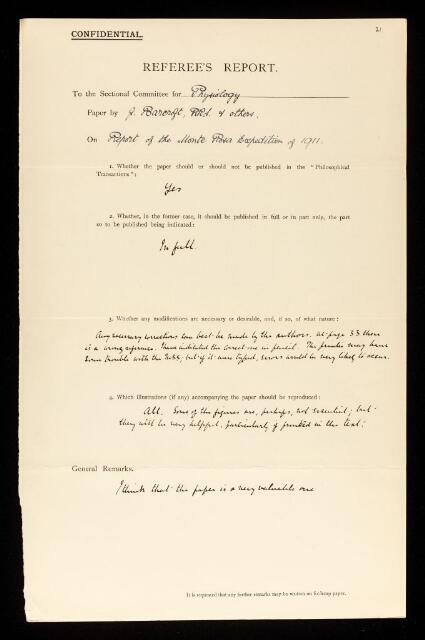 21
CONFIDENTIAL.
REFEREE'S REPORT.
To the Sectional Committee for Physiology
Paper by J. Barcroft, F.R.S. & others.
On Report of the Monte Rosa Expedition of 1911.
1. Whether the paper should or should not be published in the "Philosophical
Transactions":
Yes
2. Whether, in the former case, it should be published in full or in part only, the part
so to be published being indicated:
In full.
3. Whether any modifications are necessary or desirable, and, if so, of what nature:
Any necessary corrections can best be made by the authors. At page 33 there
is a wrong reference. I have indicated the correct one in pencil. The printer may have
some trouble with the M.S.S., but if it were typed, errors would be very likely to occur.
4. Which illustrations (if any) accompanying the paper should be reproduced:
All. Some of the figures are, perhaps, not essential; but
they will be very helpful, particularly if printed in the text.
General Remarks.
I think that the paper is a very valuable one
It is requested that any further remarks may be written on foolscap paper.